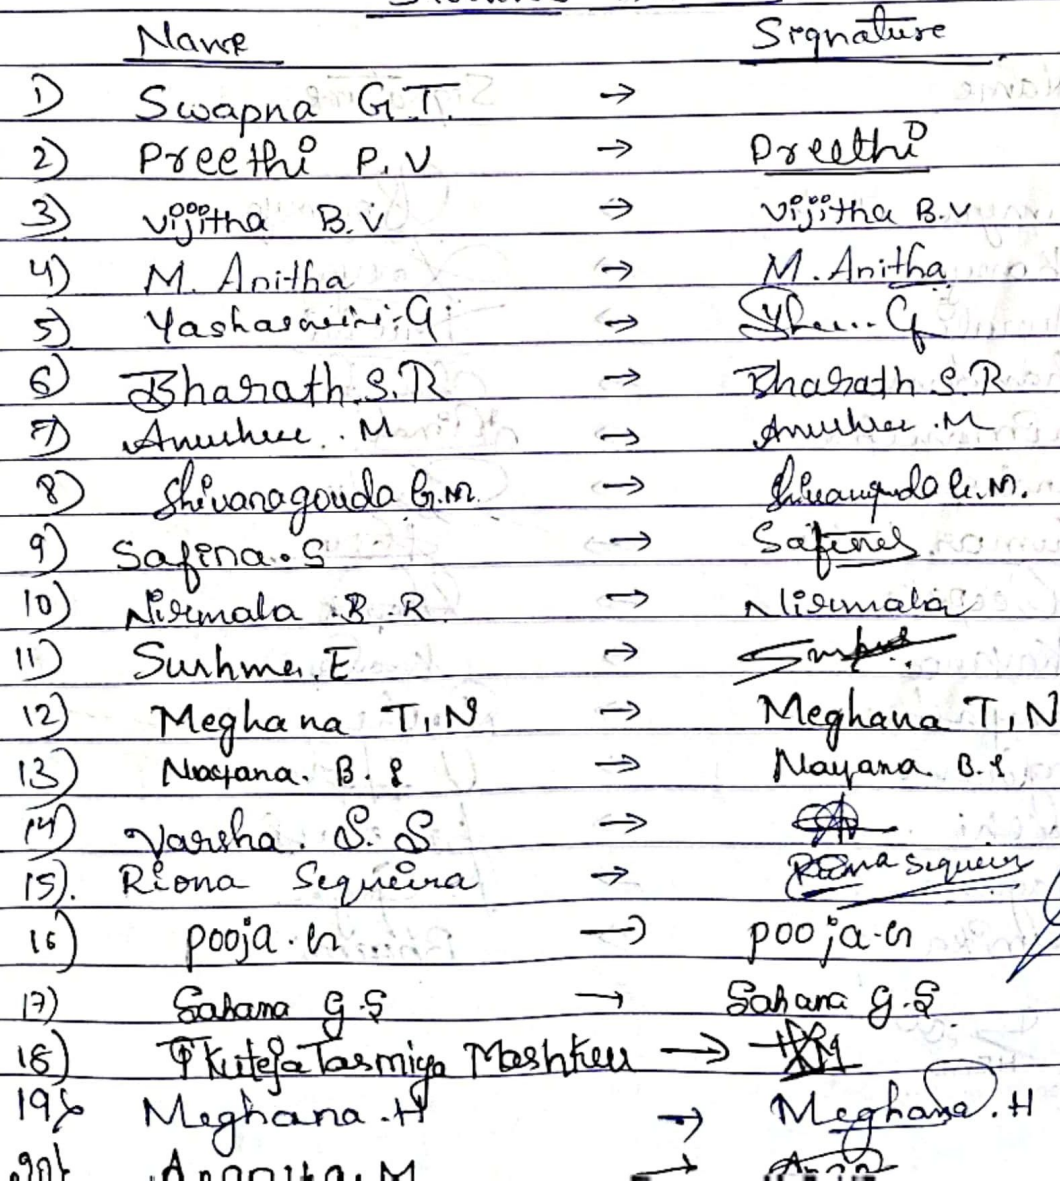 Name Signature
1) Swapna G.T. →
2) Preethi P.V → Preethi
3) Vijitha B.V → Vijitha B.V
4) M. Anitha → M. Anitha
5) Yashaswini.G →
6) Bharath.S.R → Bharath S.R
7) Anushree. M → Anushree .M
8) Shivanagouda G.M. → Shivanagouda G.M.
9) Safina.S → Safina
10) Nirmala .B.R → Nirmala
11) Sushma.E →
12) Meghana T.N → Meghana T.N
13) Nayana. B.S → Nayana. B.S
14) Varsha. S.S →
15). Riona Sequeira → Riona Sequeira
16) pooja. → pooja.
17) Sahana G.S → Sahana G.S
18) Tasmiya →
19) Meghana.H → Meghana.H
20) M →